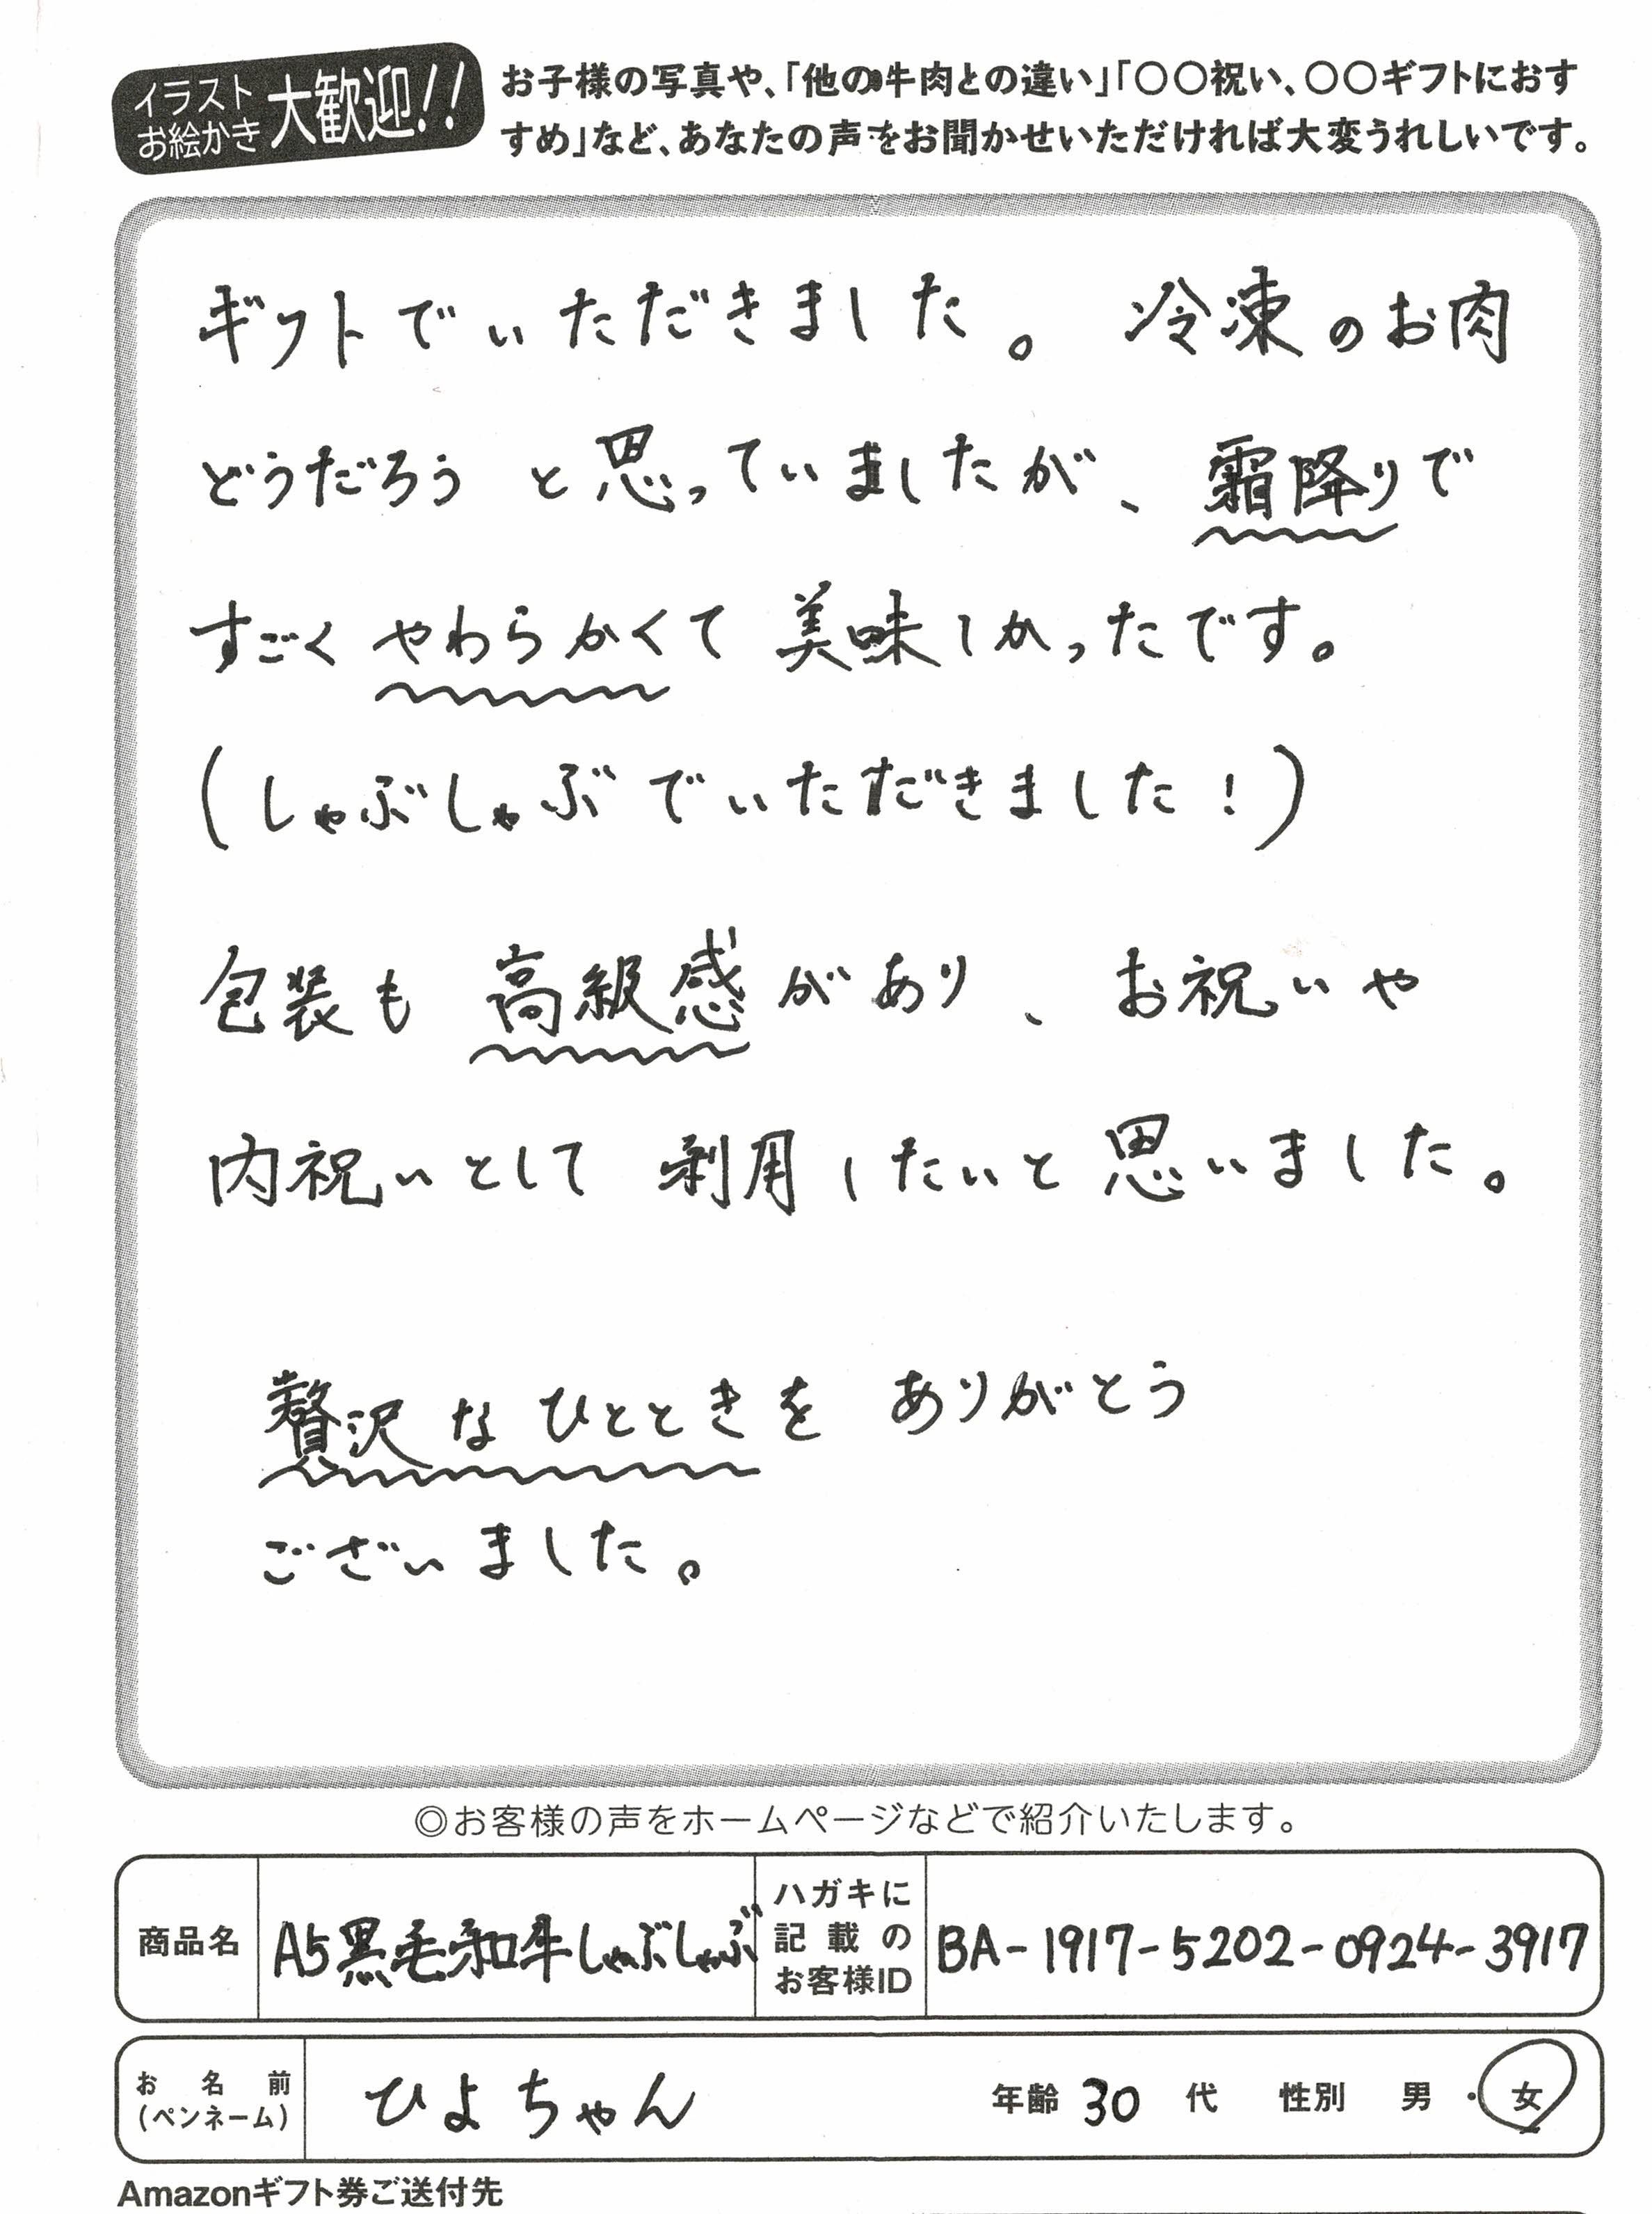 イラスト
お絵かき
大歓迎!!
お子様の写真や、「他の牛肉との違い」「〇〇祝い、〇〇ギフトにおす
すめ」など、あなたの声をお聞かせいただければ大変うれしいです。
ギフトでいただきました。 冷凍のお肉
どうだろう と思っていましたが、霜降りで
すごく やわらかくて 美味しかったです。
(しゃぶしゃぶでいただきました!)
包装も 高級感があり、お祝いや
内祝いとして 利用したいと思いました。
贅沢なひとときを ありがとう
ございました。
◎お客様の声をホームページなどで紹介いたします。
商品名 A5黒毛和牛しゃぶしゃぶ
ハガキに
記載の
お客様ID
BA-1917-5202-0924-3917
お名前
(ペンネーム)
ひよちゃん 年齢 30 代 性別 男・女
Amazonギフト券ご送付先